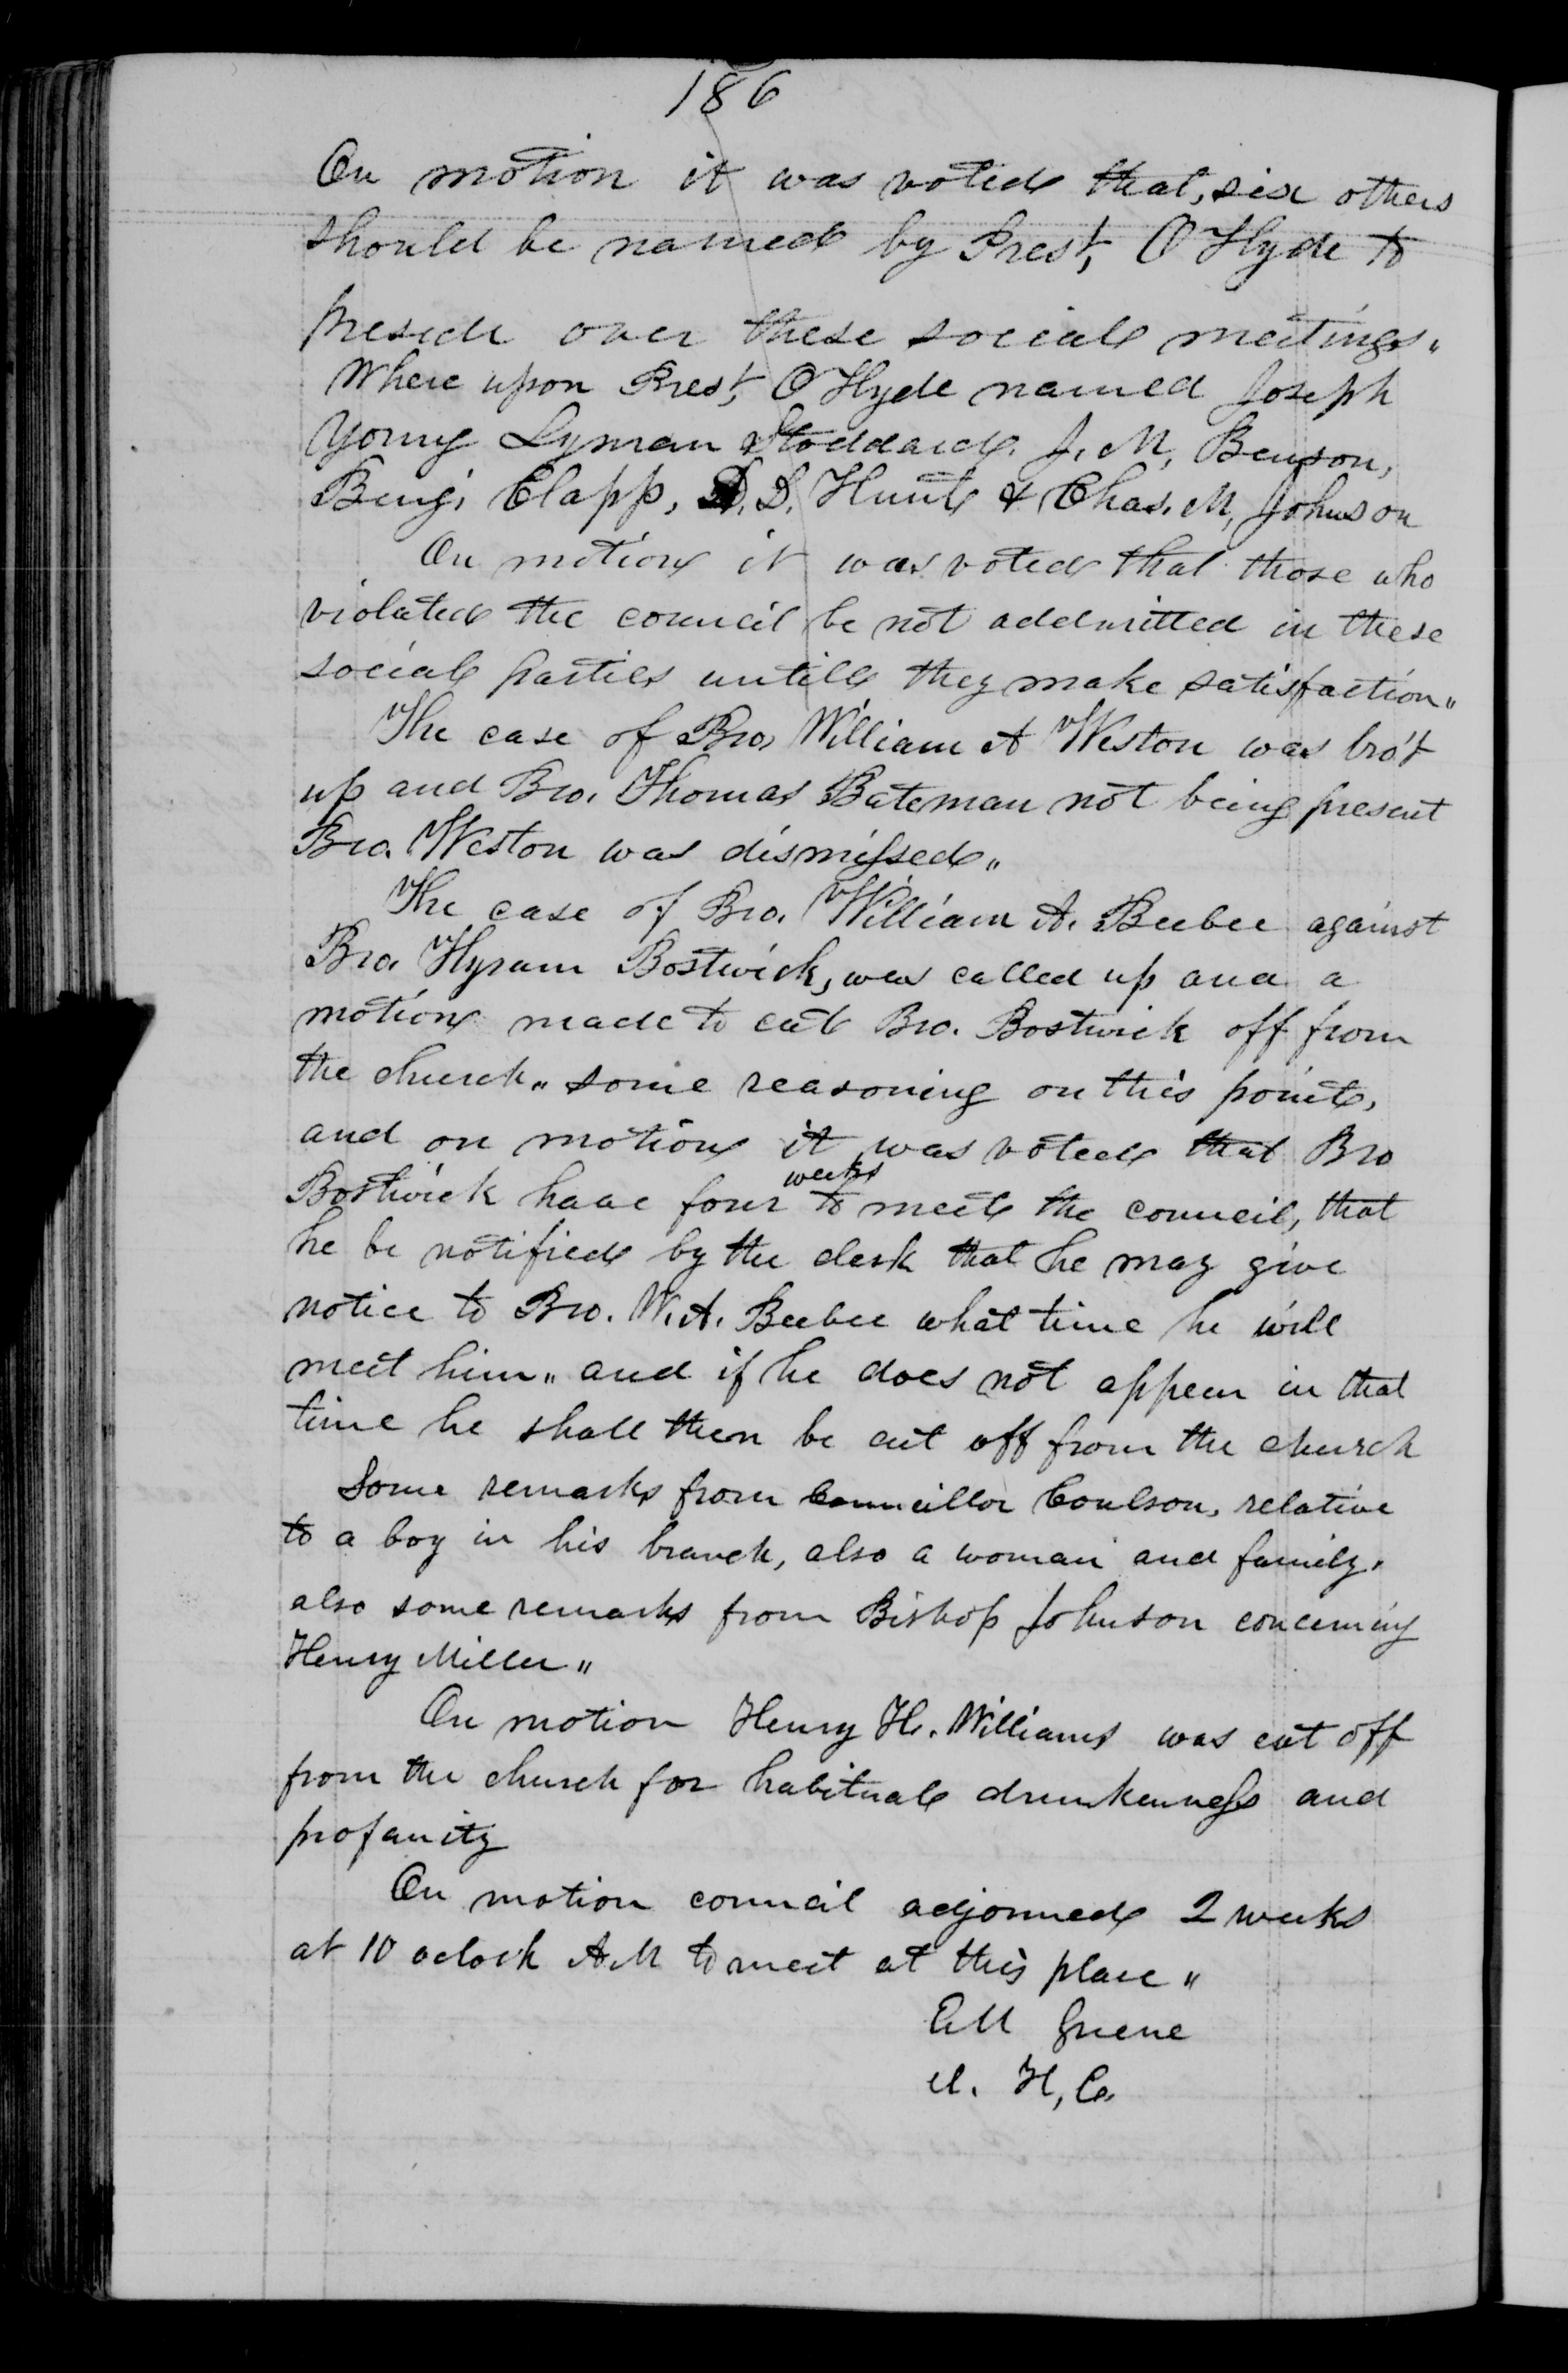 186
On motion it was voted that, six others
should be named by Prest, O Hyde to
preside over these social meetings"
Where upon Prest, O Hyde named Joseph
Young Lyman Stoddard. J. M, Benson,
Benj, Clapp, D. D. Hunt & Chas. M, Johnson
On motion it was voted that those who
violated the council be not addmitted in these
social parties untill they make satisfaction"
The case of Bro, William A Weston was bro't
up and Bro. Thomas Bateman not being present
Bro. Weston was dismissed"
The case of Bro. William A. Beebee against
Bro. Hyram Bostwick, was called up and a
motion made to cut Bro. Bostwick off from
the church" some reasoning on this point,
and on motion it was voted that Bro
Bostwick have four weeks to meet the council, that
he be notified by the clerk that he may give
notice to Bro. W. A. Beebee what time he will
meet him" and if he does not appear in that
time he shall then be cut off from the church
Some remarks from Councillor Coulson, relative
to a boy in his branch, also a woman and family,
also some remarks from Bishop Johnson concerning
Henry Miller"
On motion Henry H. Williams was cut off
from the church for habitual drunkenness and
profanity
On motion council adjourned 2 weeks
at 10 oclock A.M to meet at this place"
E M Greene
H, C,